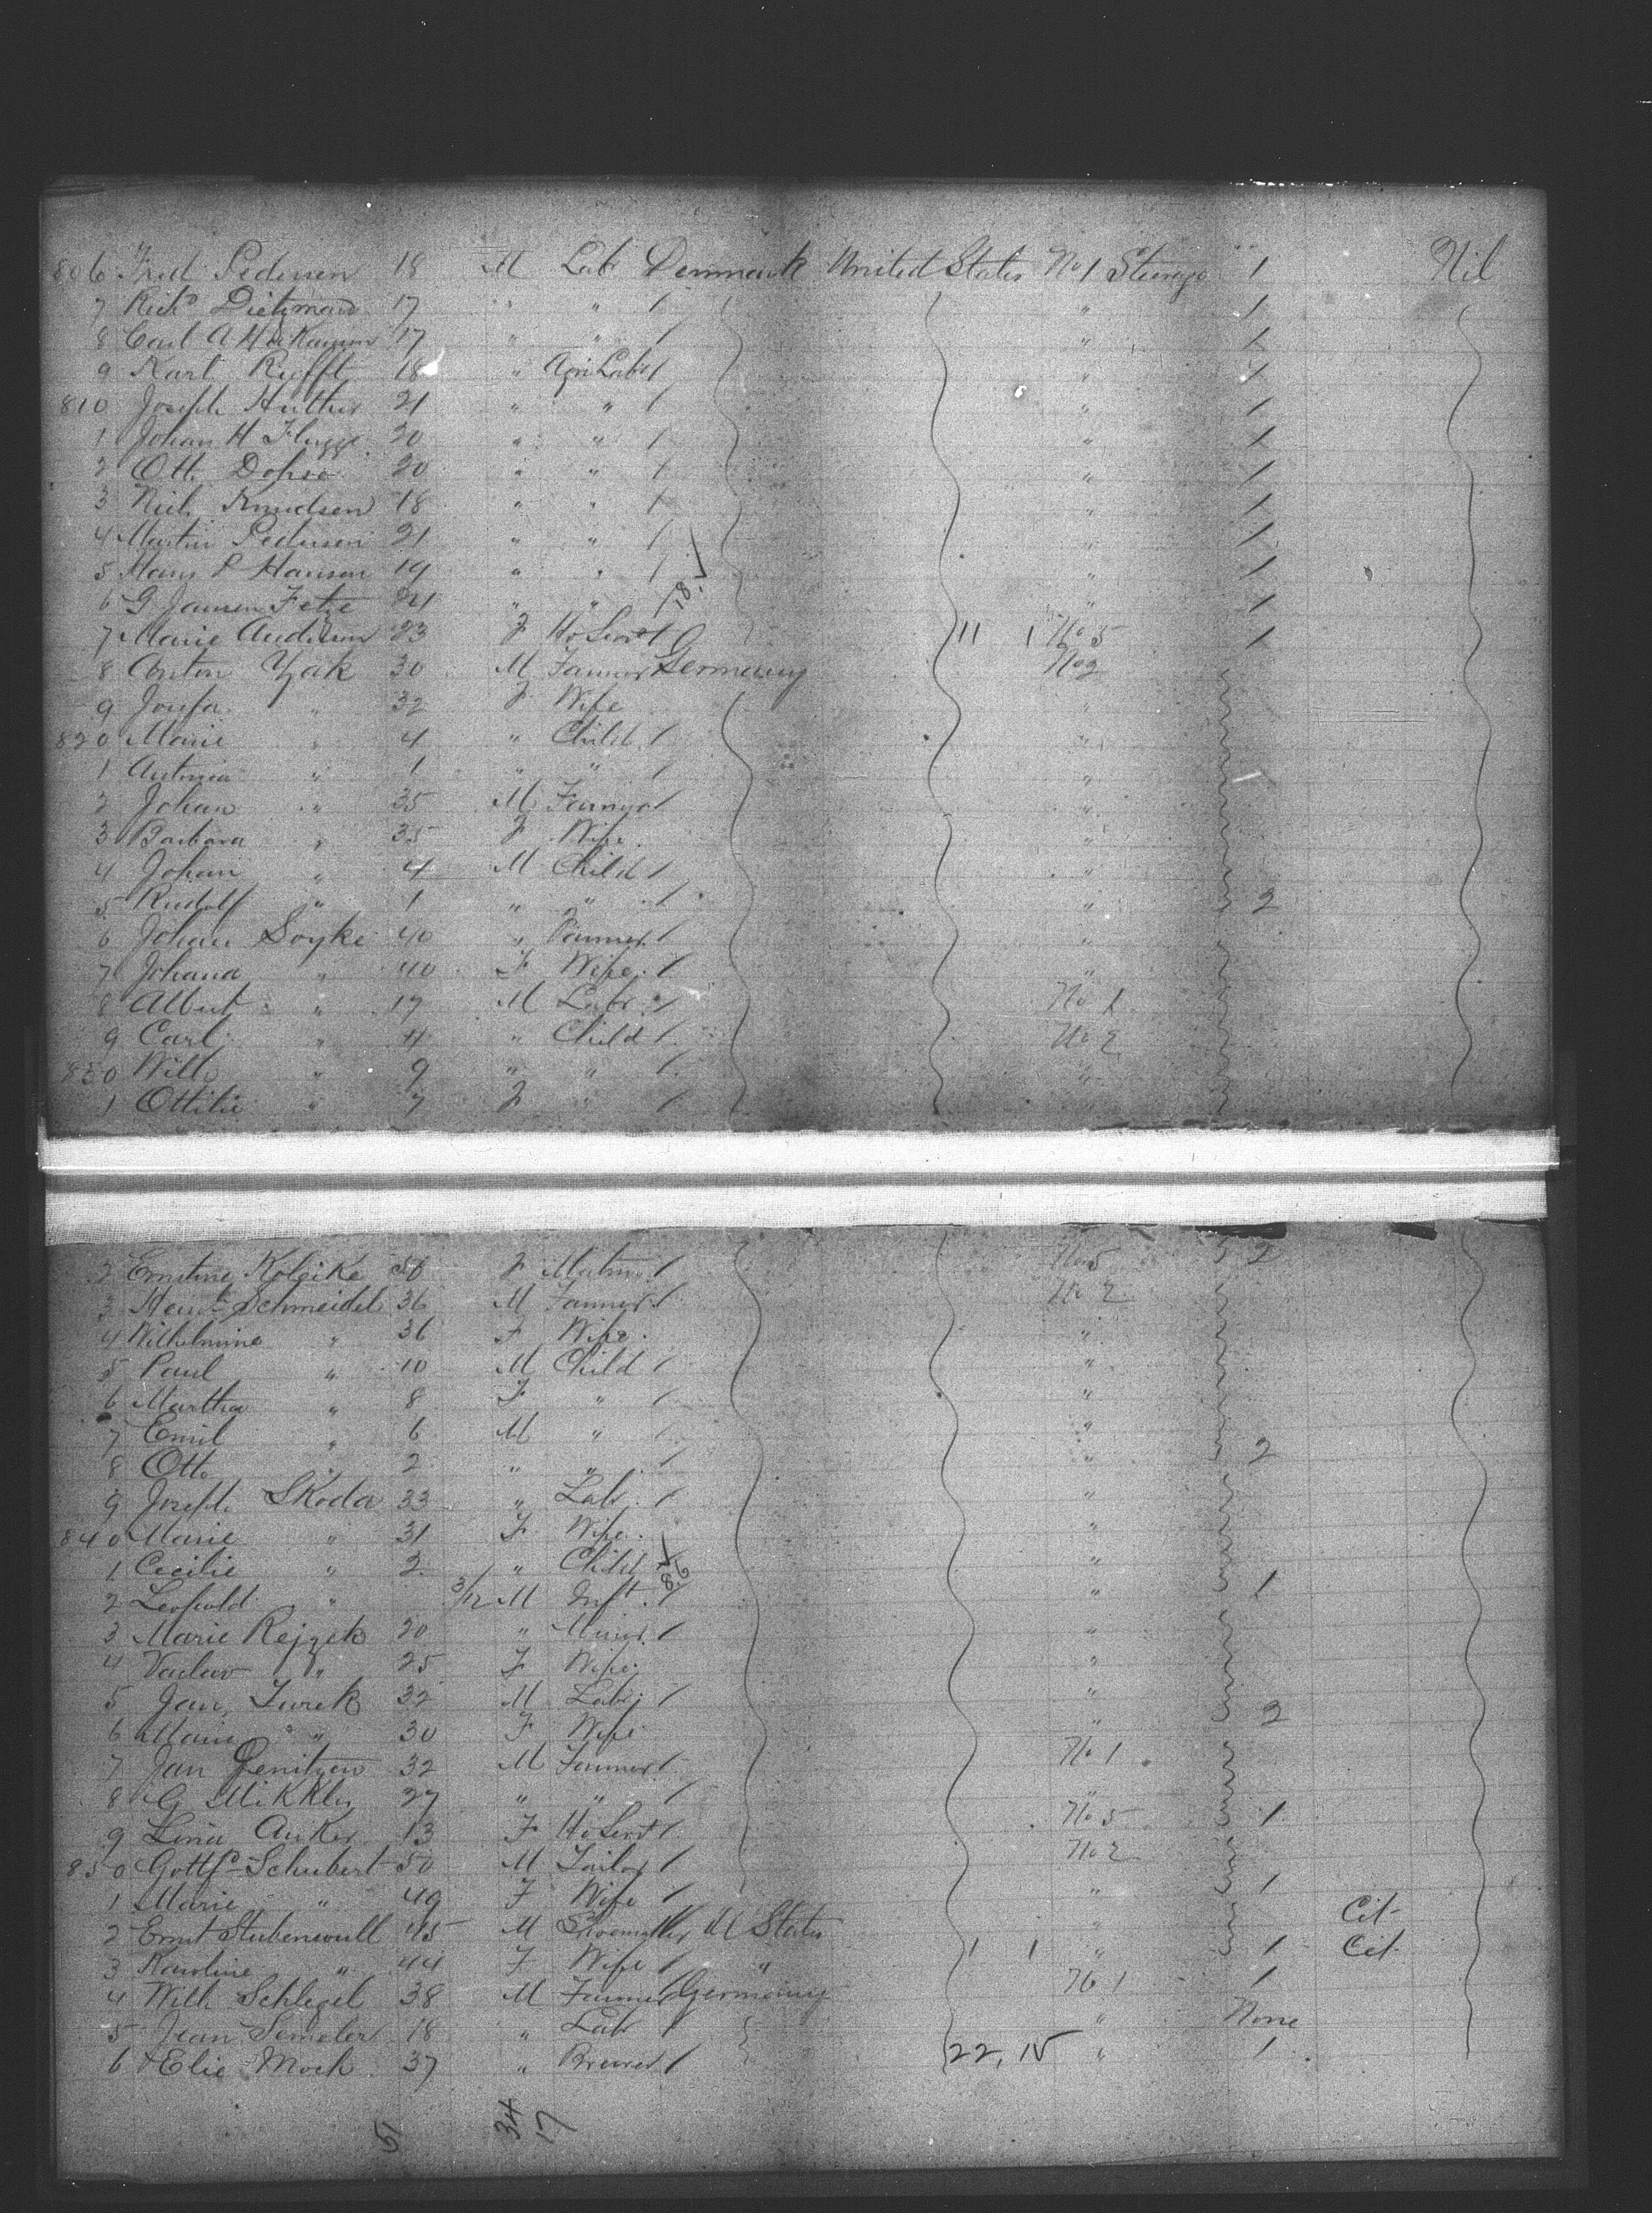 806 Fred Pedersen 18 M Lab Denmark United States No 1 Steerage 1 Nil
7 Richd Dietzmann 17 " " / " 1
8 Carl A H 17 " " / " 1
9 Karl 18 " Agri Labr / " 1
810 Joseph Huther 21 " " / " 1
1 Johan H Flugge 20 " " / " 1
2 Otto 20 " " / " 1
3 Nich Knudsen 18 " " / " 1
4 Martin Pedersen 21 " " / " 1
5 Hans P Hansen 19 " " / " 1
6 G Jansen Fetze 21 " " / " 1
7 Marie Andersen 23 F Ho Servt / 11 1 No 5 1
8 Anton Zak 30 M Farmer Germany No 2
9 Josefa " 32 F Wife "
820 Marie " 4 " Child / "
1 Antonia " 1 " " / "
2 Johan " 35 M Farmer / "
3 Barbara " 35 F Wife "
4 Johan " 4 M Child / "
5 Rudolf " 1 " " / " 2
6 Johan Soyke 40 " Farmer / "
7 Johana " 40 F Wife / "
8 Albert " 17 M Labr / No 1
9 Carl " 4 " Child / No 2
830 Willh " 9 " " / "
1 Ottilie " 7 F " / "
2 Ernstine Koleike F / No 5 2
3 Heinr Schmeidel 36 M Farmer / No 2
4 Wilhelmine " 36 F Wife "
5 Paul " 10 M Child / "
6 Martha " 8 F " / "
7 Emil " 6 M " / "
8 Otto " 2 " " / " 2
9 Joseph Skoda 33 " Labr / "
840 Marie " 31 F Wife "
1 Cecilie " 2 " Child / "
2 Leopold " 3/12 M Inft / " 1
3 Marie Rejzek 20 " Miner / "
4 Vaclav " 25 F Wife "
5 Jan Turek 32 M Labr / "
6 Marie " 30 F Wife " 2
7 Jan 32 M Farmer / No 1
8 G Mikkley 27 " " / "
9 Lina Anker 13 F Ho Servt / No 5 1
850 Gottfd Schubert 50 M Tailor / No 2
1 Marie " 49 F Wife / " 1
2 Ernst Stubenvull 45 M U States " Cit
3 Karoline " 44 F Wife / " 1 1 " 1 Cit
4 Willh Schlegel 38 M Farmer Germany No 1 1
5 Jean Semeler 18 " Labr / " None
6 + Elie Mock 37 " Brewer / 22, 15 " 1
51 34
17